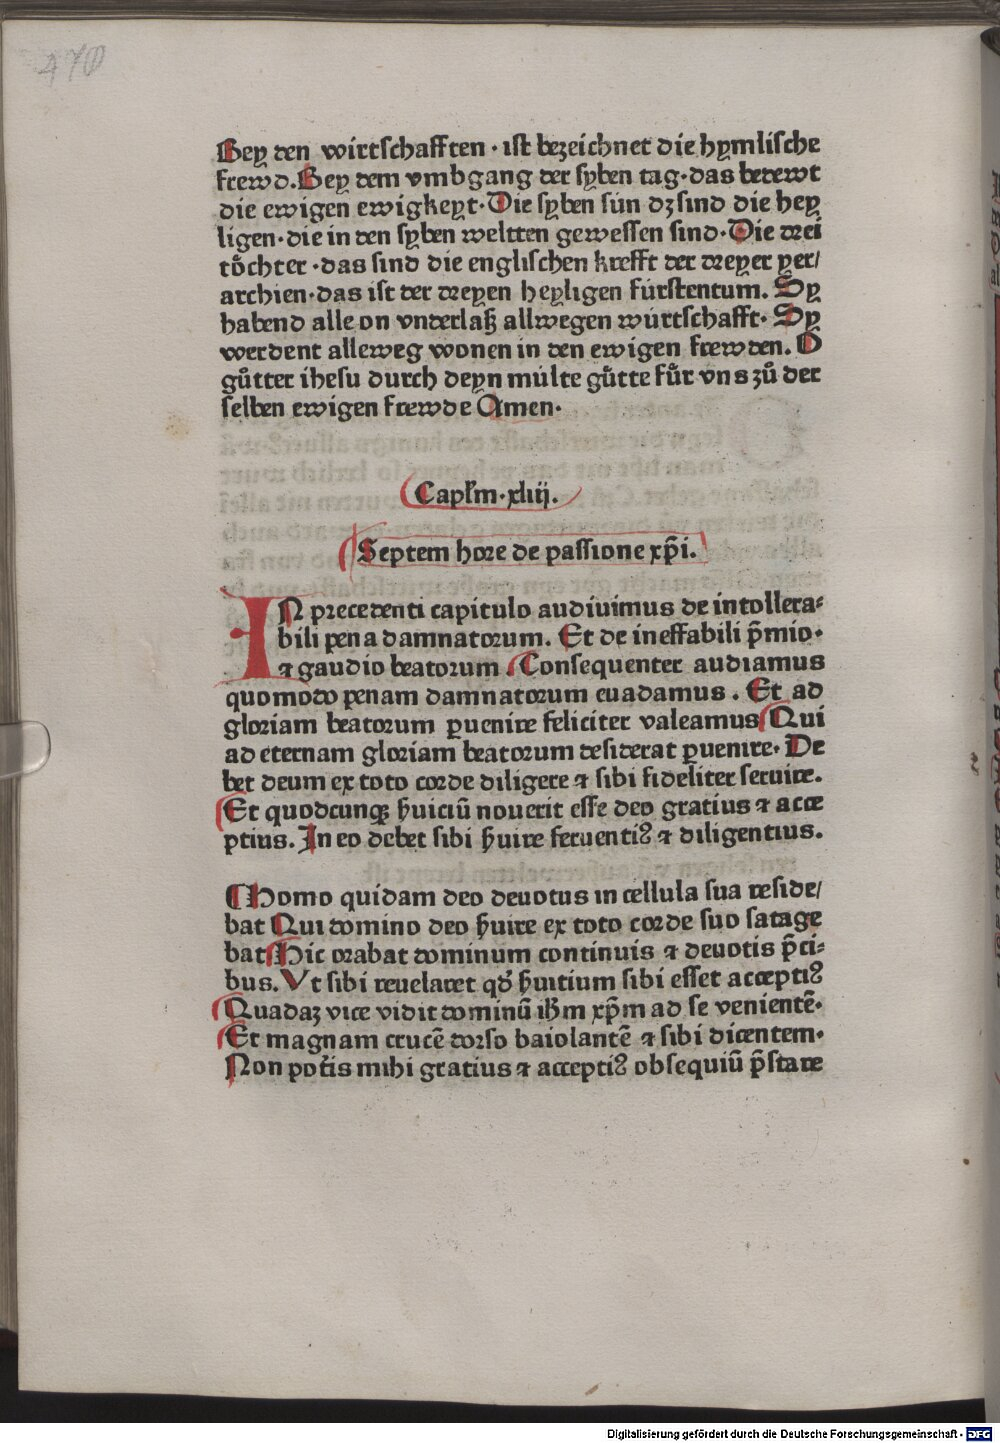 470
Bey den wirtschafften · ist bezeichnet die hymlische
frewd. Bey dem vmbgang der syben tag · das bedewt
die ewigen ewigkeyt · Die syben sún dz sind die hey
ligen · die in den syben weltten gewessen sind · Die drei
tôchter · das sind die englischen krefft der dreyer yer/
archien · das ist der dreyen heyligen fúrstentum. Sy
habend alle on vnderlaß allwegen wúrtschafft · Sy
werdent alleweg wonen in den ewigen frewden. O
gůtter ihesu durch deyn múlte gůtte fůr vns zů der
selben ewigen frewde Amen ·
Capl̄m · xliij.
Septem hore de passione xp̄i.
IN precedenti capitulo audiuimus de intollera⸗
bili pena damnatorum. Et de ineffabili p̄mio ·
⁊ gaudio beatorum. Consequenter audiamus
quomodo penam damnatorum euadamus. Et ad
gloriam beatorum ꝑuenire feliciter valeamus Qui
ad eternam gloriam beatorum desiderat ꝑuenire · De
bet deum ex toto corde diligere ⁊ sibi fideliter seruire.
Et quodcunqꝫ ẜuiciū nouerit esse deo gratius ⁊ acce
ptius. In eo debet sibi ẜuire feruentiꝰ ⁊ diligentius.
Homo quidam deo deuotus in cellula sua reside/
bat Qui domino deo ẜuire ex toto corde suo satage
bat Hic orabat dominum continuis ⁊ deuotis p̄ci⸗
bus. Vt sibi reuelaret qd̓ ẜuitium sibi esset acceptiꝰ
Quadaꝫ vice vidit dominū ihm̄ xp̄m ad se venientē ·
Et magnam crucē dorso baiolantē ⁊ sibi dicentem ·
Non pot̓is mihi gratius ⁊ acceptiꝰ obsequiū p̄stare
Digitalisierung gefördert durch die Deutsche Forschungsgemeinschaft - DFG